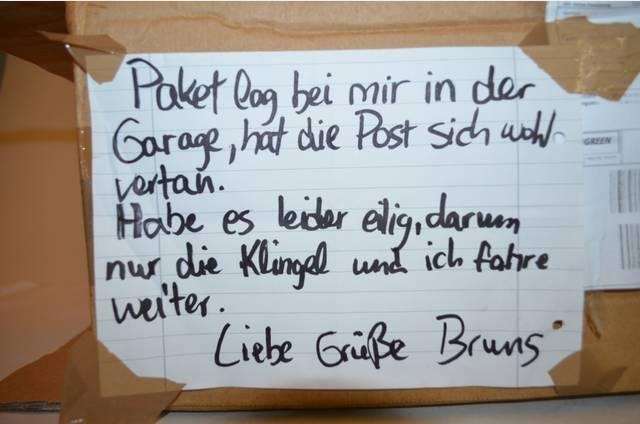 Paket lag bei mir in der
Garage, hat die Post sich wohl
vertan.
Habe es leider eilig, darum
nur die Klingel und ich fahre
weiter.
Liebe Grüße Bruns
GREEN